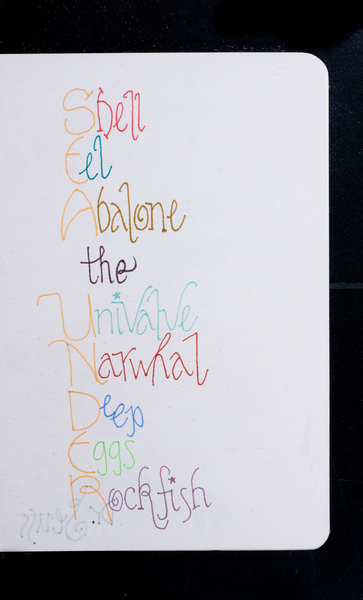 Shell
Eel
Abalone
the
Univalve
Narwhal
Deep
Eggs
Rockfish